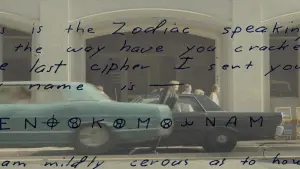 s is the Zodiac speakin
the way have you cracke
e last cipher I sent you
y name is —
E N ⌖ ⊗ K ⊗ M ⊗ ⅃ N A M
am mildly cerous as to how